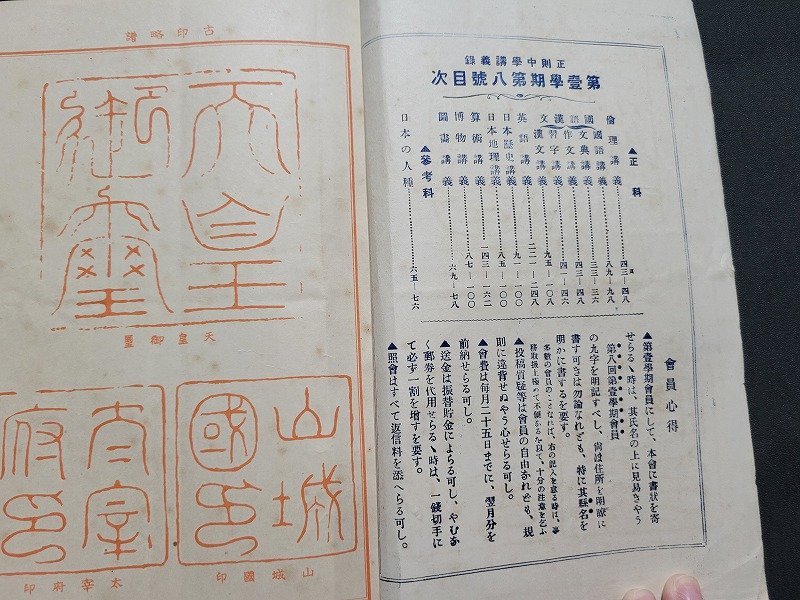 正則中學講義錄
第壹學期第八號目次
▲正科
倫理講義……四三—四八
國語講義……八九—九八
文典講義……三三—三六
作文講義……四三—四八
習字講義……四一—四六
漢文講義……九五—一〇八
國語漢文
英語講義……二二一—二四八
日本歷史講義……九一—一〇〇
日本地理講義……八五—一〇〇
算術講義……一四三—一六二
博物講義……八七—一〇〇
圖畫講義……六九—七八
▲參考科
日本の人種……六五—七六
會員心得
▲第壹學期會員にして、本會に書狀を寄
せらるゝ時は、其氏名の上に見易きやう
第八回第壹學期會員
の九字を明記すべし、尙ほ住所を明諒に
書す可きは勿論なれども、特に其縣名を
明かに書するを要す。
多數の會員のことなれば、右の記入を怠る時は、事
務取扱上極めて不便なるを以て、十分の注意を乞ふ
▲投稿質疑等は會員の自由なれども、規
則に違背せぬやう心せらる可し。
▲會費は每月二十五日までに、翌月分を
前納せらる可し。
▲送金は振替貯金によらる可し、やむな
く郵券を代用せらるゝ時は、一錢切手に
て必ず一割を增すを要す。
▲照會はすべて返信料を添へらる可し。
古印略譜
天皇
御璽
天皇御璽
山城
國印
山城國印
太宰
府印
太宰府印